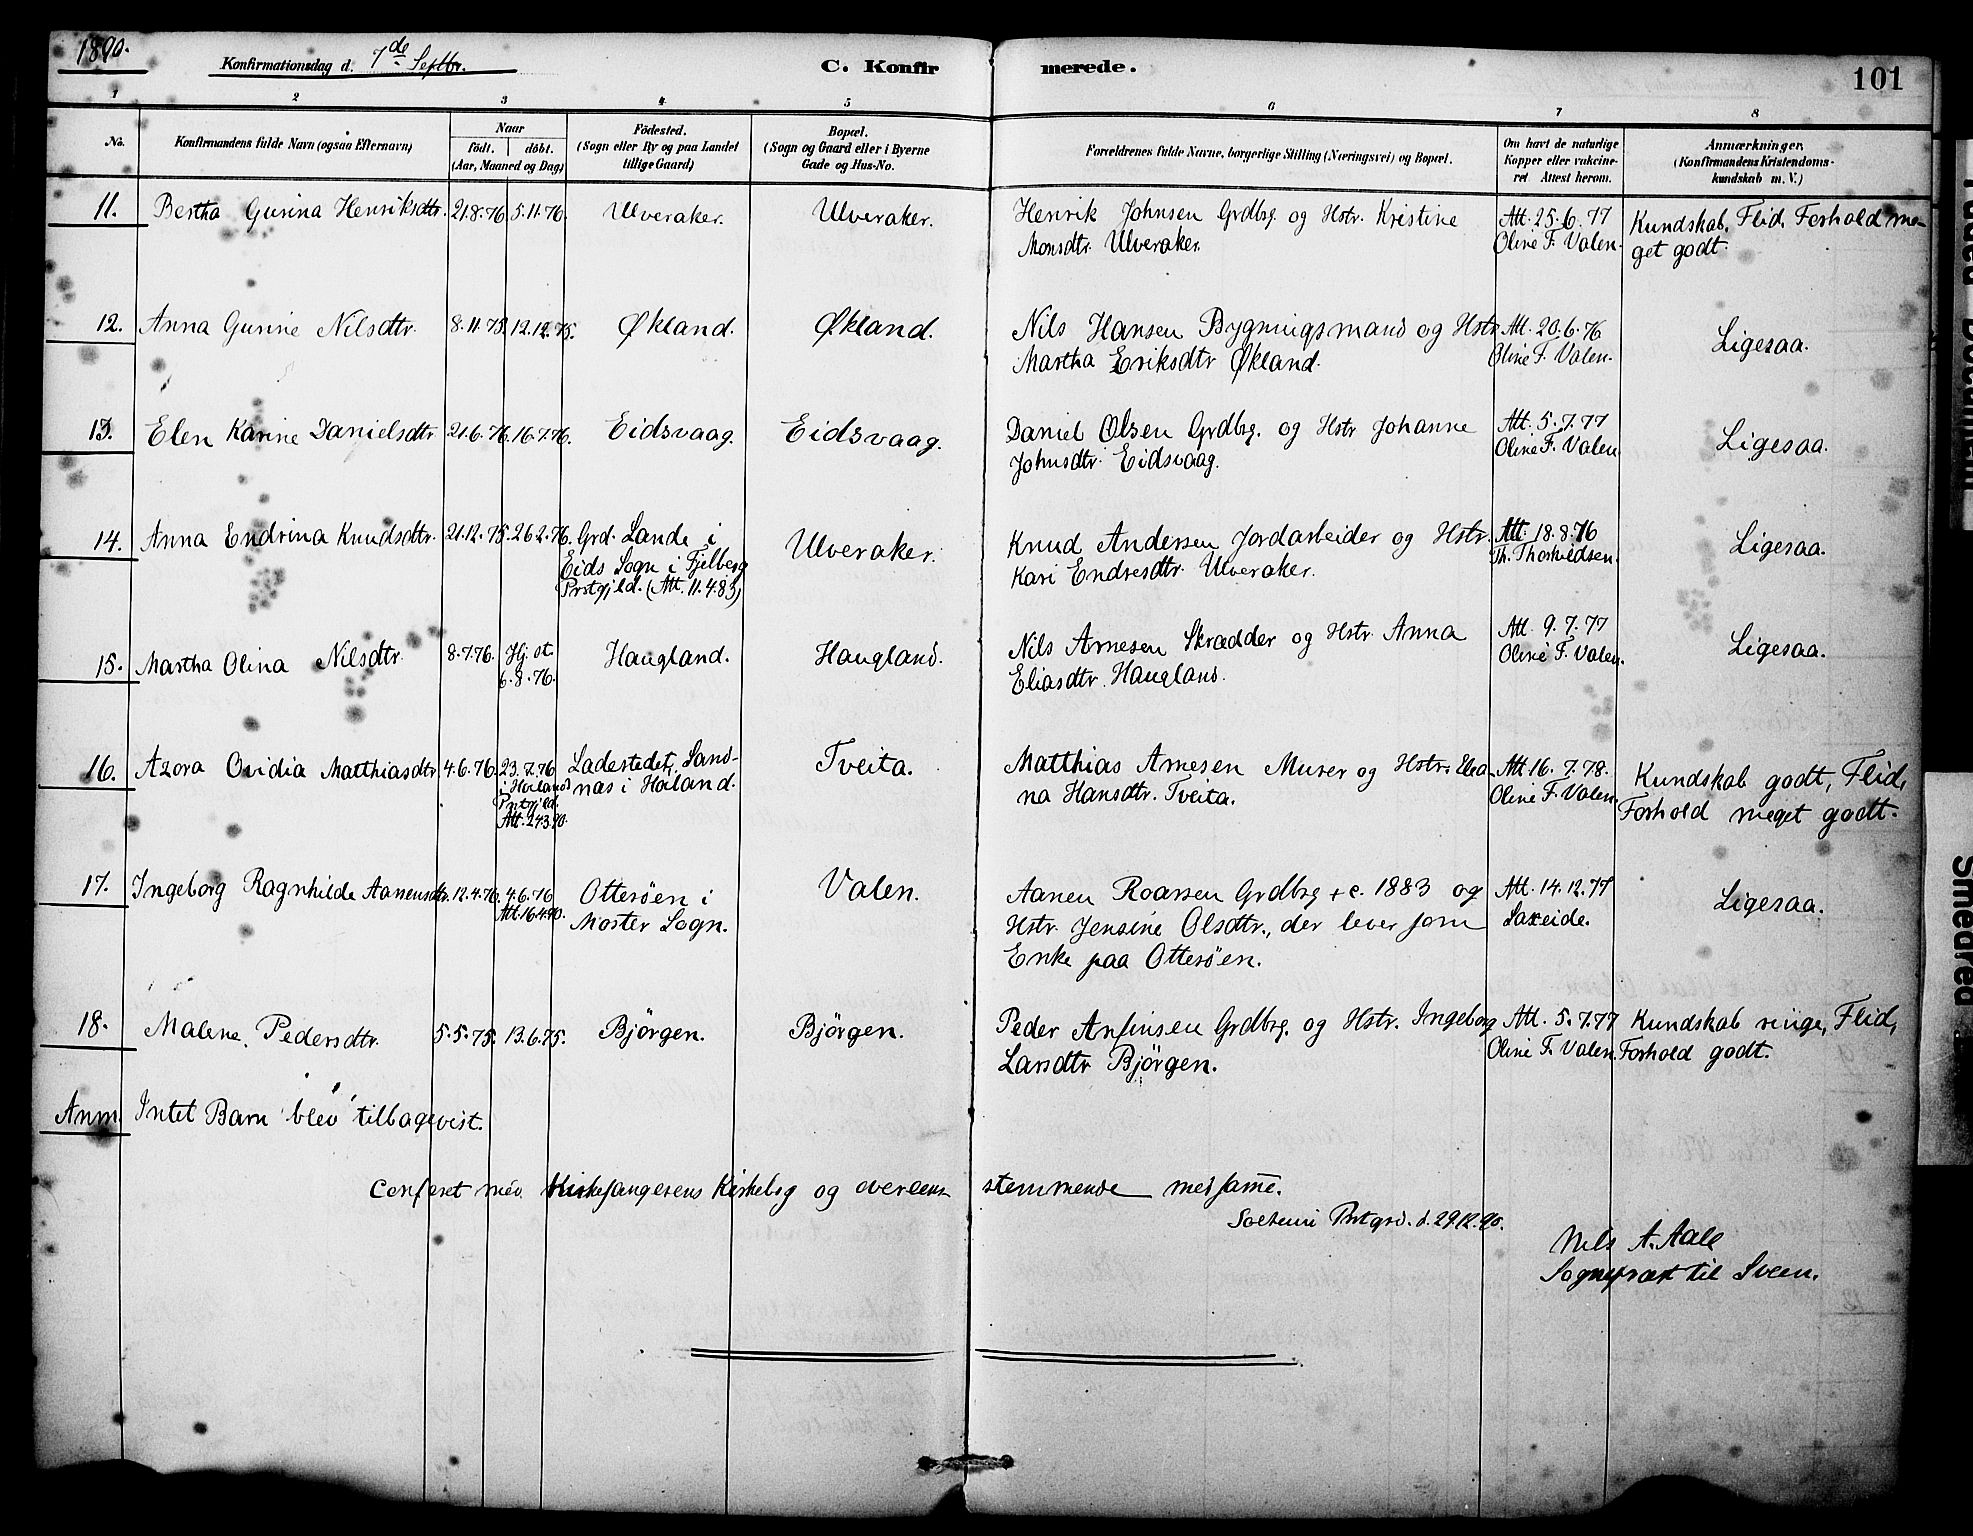 1890. Konfirmationsdag d. 7de Septbr. C. Konfirmerede. 101
1 2 3 4 5 6 7 8
No. Konfirmandens fulde Navn (ogsaa Efternavn) Naar födt. döbt. (Aar, Maaned og Dag) Födested. (Sogn eller By og paa Landet tillige Gaard) Bopæl. (Sogn og Gaard eller i Byerne Gade og Hus-No. Forældrenes fulde Navne, borgerlige Stilling (Næringsvei) og Bopæl. Om havt de naturlige Kopper eller vakcineret Attest herom. Anmærkninger. (Konfirmandens Kristendomskundskab m. V.)
11. Bertha Gurina Henriksdtr. 21.8.76 5.11.76. Ulveraker. Ulveraker. Henrik Johnsen Grdbrg. og Hstr. Kristine Att. 25.6.77 Kundskab, Flid, Forhold me-
Monsdtr. Ulveraker. Oline F. Valen. get godt.
12. Anna Gurine Nilsdtr. 8.11.75 12.12.75. Økland. Økland. Nils Hansen Bygningsmand og Hstr. Att. 20.6.76 Ligesaa.
Martha Eriksdtr Økland. Oline F. Valen.
13. Elen Karine Danielsdtr 21.6.76. 16.7.76. Eidsvaag. Eidsvaag. Daniel Olsen Grdbrg. og Hstr Johanne Att. 5.7.77 Ligesaa.
Johnsdtr. Eidsvaag. Oline F. Valen
14. Anna Endrina Knudsdtr. 21.12.75. 26.2.76. Grd. Lande i Ulveraker. Knud Andersen Jordarbeider og Hstr. Att. 18.8.76 Ligesaa.
Eids Sogn i Fjelberg Kari Endresdtr. Ulveraker. Th. Thorkildsen.
Prstgjld. (Att. 11.4.83)
15. Martha Olina Nilsdtr. 8.7.76. Hj. st. Haugland. Haugland. Nils Arnesen Skrædder og Hstr. Anna Att. 9.7.77 Ligesaa.
6.8.76. Eliasdtr. Haugland. Oline F. Valen.
16. Azora Ovidia Matthiasdtr 4.6.76. 23.7.76 Ladestedet Sand- Tveita. Matthias Arnesen Murer og Hstr. Elea- Att 16.7.78. Kundskab godt, Flid,
i Hoiland nas i Hoiland. na Hansdtr. Tveita. Oline F. Valen. Forhold meget godt.
Prstgjld.
Att. 24.3.90.
17. Ingeborg Ragnhilde Aanensdtr. 12.4.76. 4.6.76 Otterøen i Valen. Aanen Roarsen Grdbrg + c. 1883 og Att. 14.12.77 Ligesaa.
Att. 16.4.90. Moster Sogn. Hstr. Jensine Olsdtr., der lever som Saxeide.
Enke paa Otterøen.
18. Malene Pedersdtr. 5.5.75. 13.6.75. Björgen. Björgen. Peder Anfinsen Grdbrg. og Hstr. Ingeborg Att. 5.7.77 Kundskab ringe, Flid,
Larsdtr Björgen. Oline F. Valen. Forhold godt.
Anm. Intet Barn blev tilbagevist.
Conferet med Kirkesangerens Kirkebog og overens stemmende med samme.
Prstgrd. d. 29.12.90.
Nils A. Aale
Sogneprest til Sveen.